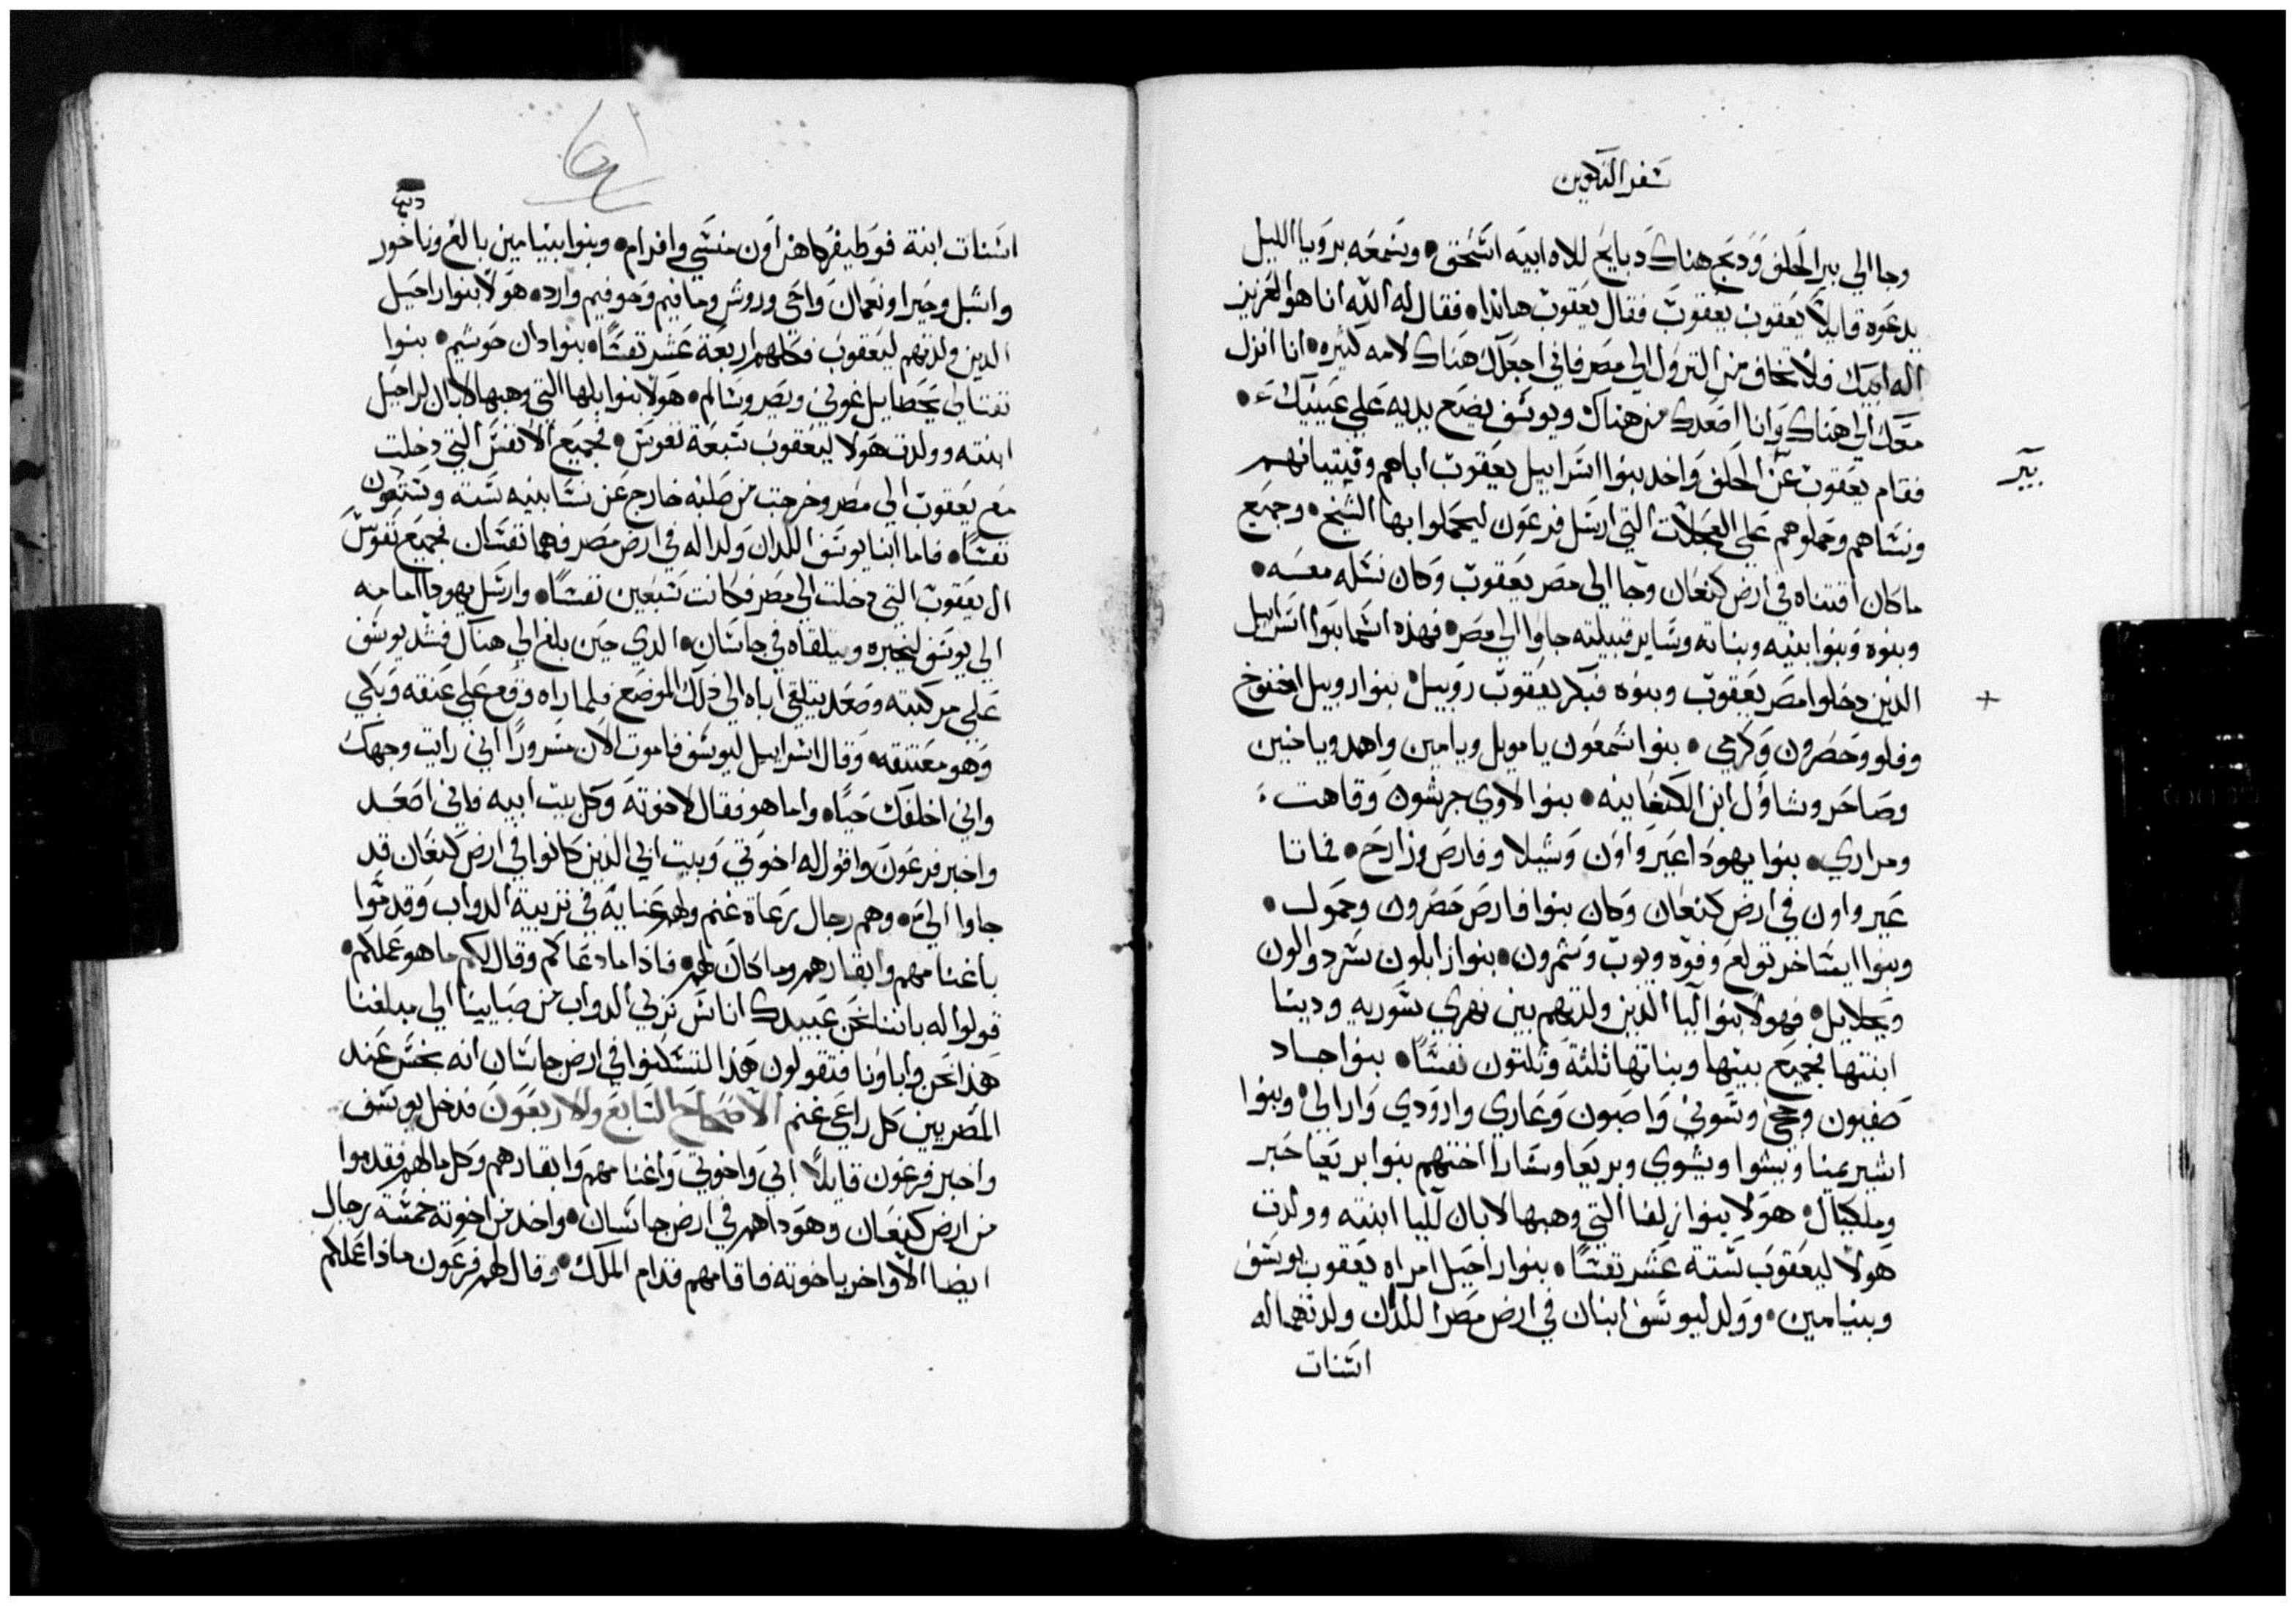 سفر التكوين
وجا الي بير الحلف وَدبح هناك دبايح للاه ابيه اسحق • وسمعه برويا الليل
يدعوه قايلاً يعقوب يعقوب فقال يعقوب هانذا • فقال له الله انا هو العزيز
اله ابيك فلا تخاف من النزول الي مصر فاني اجعلك هناك لامه كثيره • انا انزل
معك الي هناك وانا اصعدك من هناك ويوسف يضع يديه علي عينيك •
فقام يعقوب عن الحلف واخد بنوا اسراييل يعقوب اباهم وفتيانهم
بير
ونساهم وحملوهم علي العجلات التي ارسل فرعون ليحملوا بها الشيخ • وجميع
ما كان اقتناه في ارض كنعان وجا الي مصر يعقوب وكان نسله معه •
وبنوه وبنوا بنيه وبناته وساير قبيلته جاوا الي مصر • فهذه اسما بنوا اسراييل
الذين دخلوا مصر يعقوب وبنوه فبكر يعقوب روبيل • بنوا روبيل اخنوخ
وفلو وحصرون وكرمي • بنوا شمعون يامويل ويامين واهد وياخين
وصاحر وشاول ابن الكنعانيه • بنوا لاوي جرشون وقاهت
ومراري • بنوا يهودا عير واون وشيلا وفارص وزارح • فماتا
عير واون في ارض كنعان وكان بنوا فارص حصرون وحمول •
وبنوا ايساخر تولع وفوه ويوب وشمرون • بنوا زابلون سرد والون
ويحلاييل • فهولا بنوا ليا الذين ولدتهم بين نهري سوريه ودينا
ابنتها فجميع بنيها وبناتها ثلثة وثلثون نفسًا • بنوا جاد
صفيون وحجي وشوني واصبون وعاري وارودي وارالي • وبنوا
اشير يمنا ويشوا ويشوي وبريعا وسارا اختهم بنوا بريعا حبر
وملكيال • هولا بنوا زلفا التي وهبها لابان لليا ابنته وولدت
هولا ليعقوب ستة عشر نفسًا • بنوا راحيل امراه يعقوب يوسف
وبنيامين • وولد ليوسف ابنان في ارض مصر اللذان ولدتهما له
اسنات
اسنات ابنة فوطيفر كاهن اون منسي وافرام • وبنوا بنيامين بالع وباخور
واشبل وجيرا ونعمان واحي وروش ومافيم وحوفيم وارد • هولا بنوا راحيل
الدين ولدتهم ليعقوب فكلهم اربعة عشر نفسًا • بنوا دان حوشيم • بنوا
نفتالي يحصاييل غوني ويصر وشالم • هولا بنوا بلها التي وهبها لابان لراحيل
ابنته وولدت هولا ليعقوب سبعة نفوس • فجميع الانفس التي دخلت
مع يعقوب الي مصر وخرجت من صلبه خارج عن نسا بنيه ستة وستون
نفسًا • فاما ابنا يوسف اللدان ولدا له في ارض مصر فهما نفسان فجميع نفوس
ال يعقوب التي دخلت الي مصر فكانت سبعين نفسًا • وارسل يهودا امامه
الي يوسف ليخبره ويلقاه في جاسان • الدي حين بلغ الي هناك فشد يوسف
علي مركبته وصعد يتلقي اباه الي ذلك الموضع فلما راه وقع علي عنقه وبكي
وهو معتنقه • وقال اسراييل ليوسف فاموت الان مسرورًا اني رايت وجهك
واني اخلفك حيًا • واما هو فقال لاخوته وكل بيت ابيه فاني اصعد
واخبر فرعون واقول له اخوتي وبيت ابي الذين كانوا في ارض كنعان قد
جاوا الي • وهم رجال رعاة غنم ولهم عناية في تربية الدواب وقدموا
باغنامهم وابقارهم وما كان لهم • فاذا ما دعاكم وقال لكم ما هو عملكم •
قولوا له باننا نحن عبيدك اناس نربي الدواب من صبايينا الي مبلغنا
هذا نحن واباونا فتقولون هذا لتسكنوا في ارض جاسان انه نجس عند
المصريين كل راعي غنم الاصحاح السابع والاربعون فدخل يوسف
واخبر فرعون قايلاً ابي واخوتي واغنامهم وابقارهم وكل مالهم فقدموا
من ارض كنعان وهوداهم في ارض جاسان • واخد من اخوته خمسة رجال
ايضا الاواخر باخوته فاقامهم قدام الملك • وقال لهم فرعون ماذا عملكم